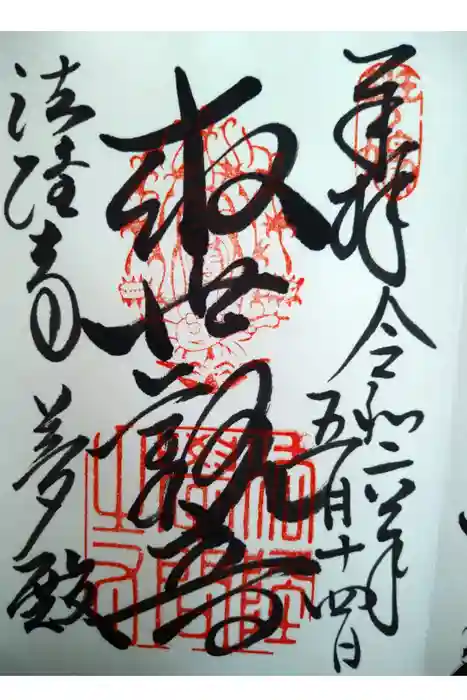 奉拝
令和六年
五月十四日
救世観音
法隆寺 夢殿